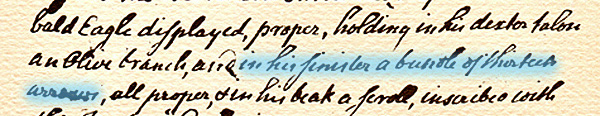 bald Eagle displayed, proper, holding in his dexter talon
an Olive branch, and in his sinister a bundle of thirteen
arrows, all proper, & in his beak a scroll, inscribed with